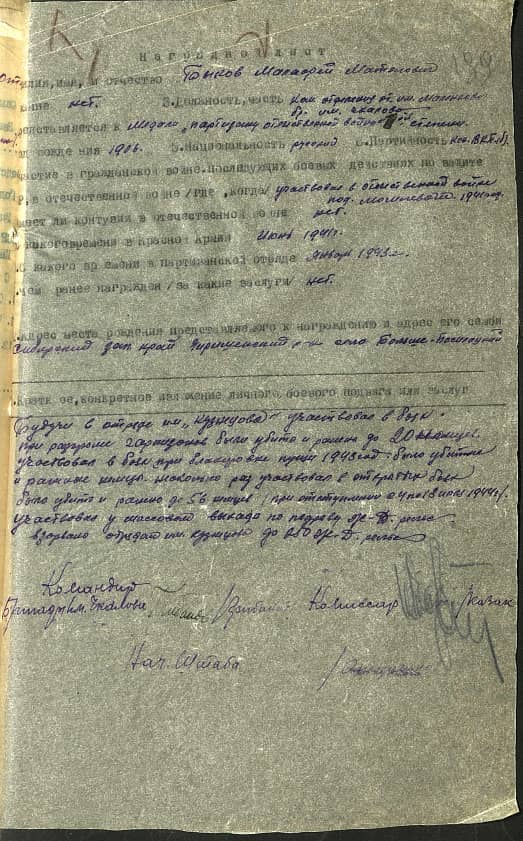 139
Наградной лист
илия, имя, и отчество Быков Малафей
ание нет. 3. Должность, часть Ком отделения от. им.
бр. им. Чкалова
редставляется к Медали, партизану отечественной войны степени.
од рождения 1906. 5. Национальность русский 6. Партийность ВКП(б)
частие в гражданской войне. Последующих боевых действиях по защите
Р, в отечественной войне /где, когда/ участвовал в отечественной войне
под 1941 год
меет ли контузии в отечественной войне нет.
С какого времени в Красной Армии Июнь 1941 г.
С какого времени в партизанской отряде Январь 1943 г.
Чем ранее награжден /за какие заслуги/ нет.
Адрес места рождения представляемого к награждению и адрес его семьи
Сибирский зап. край р-н село Больше-
Краткое, конкретное изложение личного боевого подвига или заслуг
Будучи в отряде им. "Кузнецова" участвовал в боях.
При разгроме гарнизонов было убито и ранено до 20
участвовал в боях при блокировке 1943 год было убито
и ранено несколько раз участвовал в открытых боях
было убито и ранено до 56 /при отступлении с 4 по 18 июля 1944 г/.
Участвовал в массовом по подрыву ж-д. рельс
взорвано отрядом им Кузнецова до ж-д. рельс
Командир
Бригады им. Чкалова Комиссар /Казак
Нач. Штаба